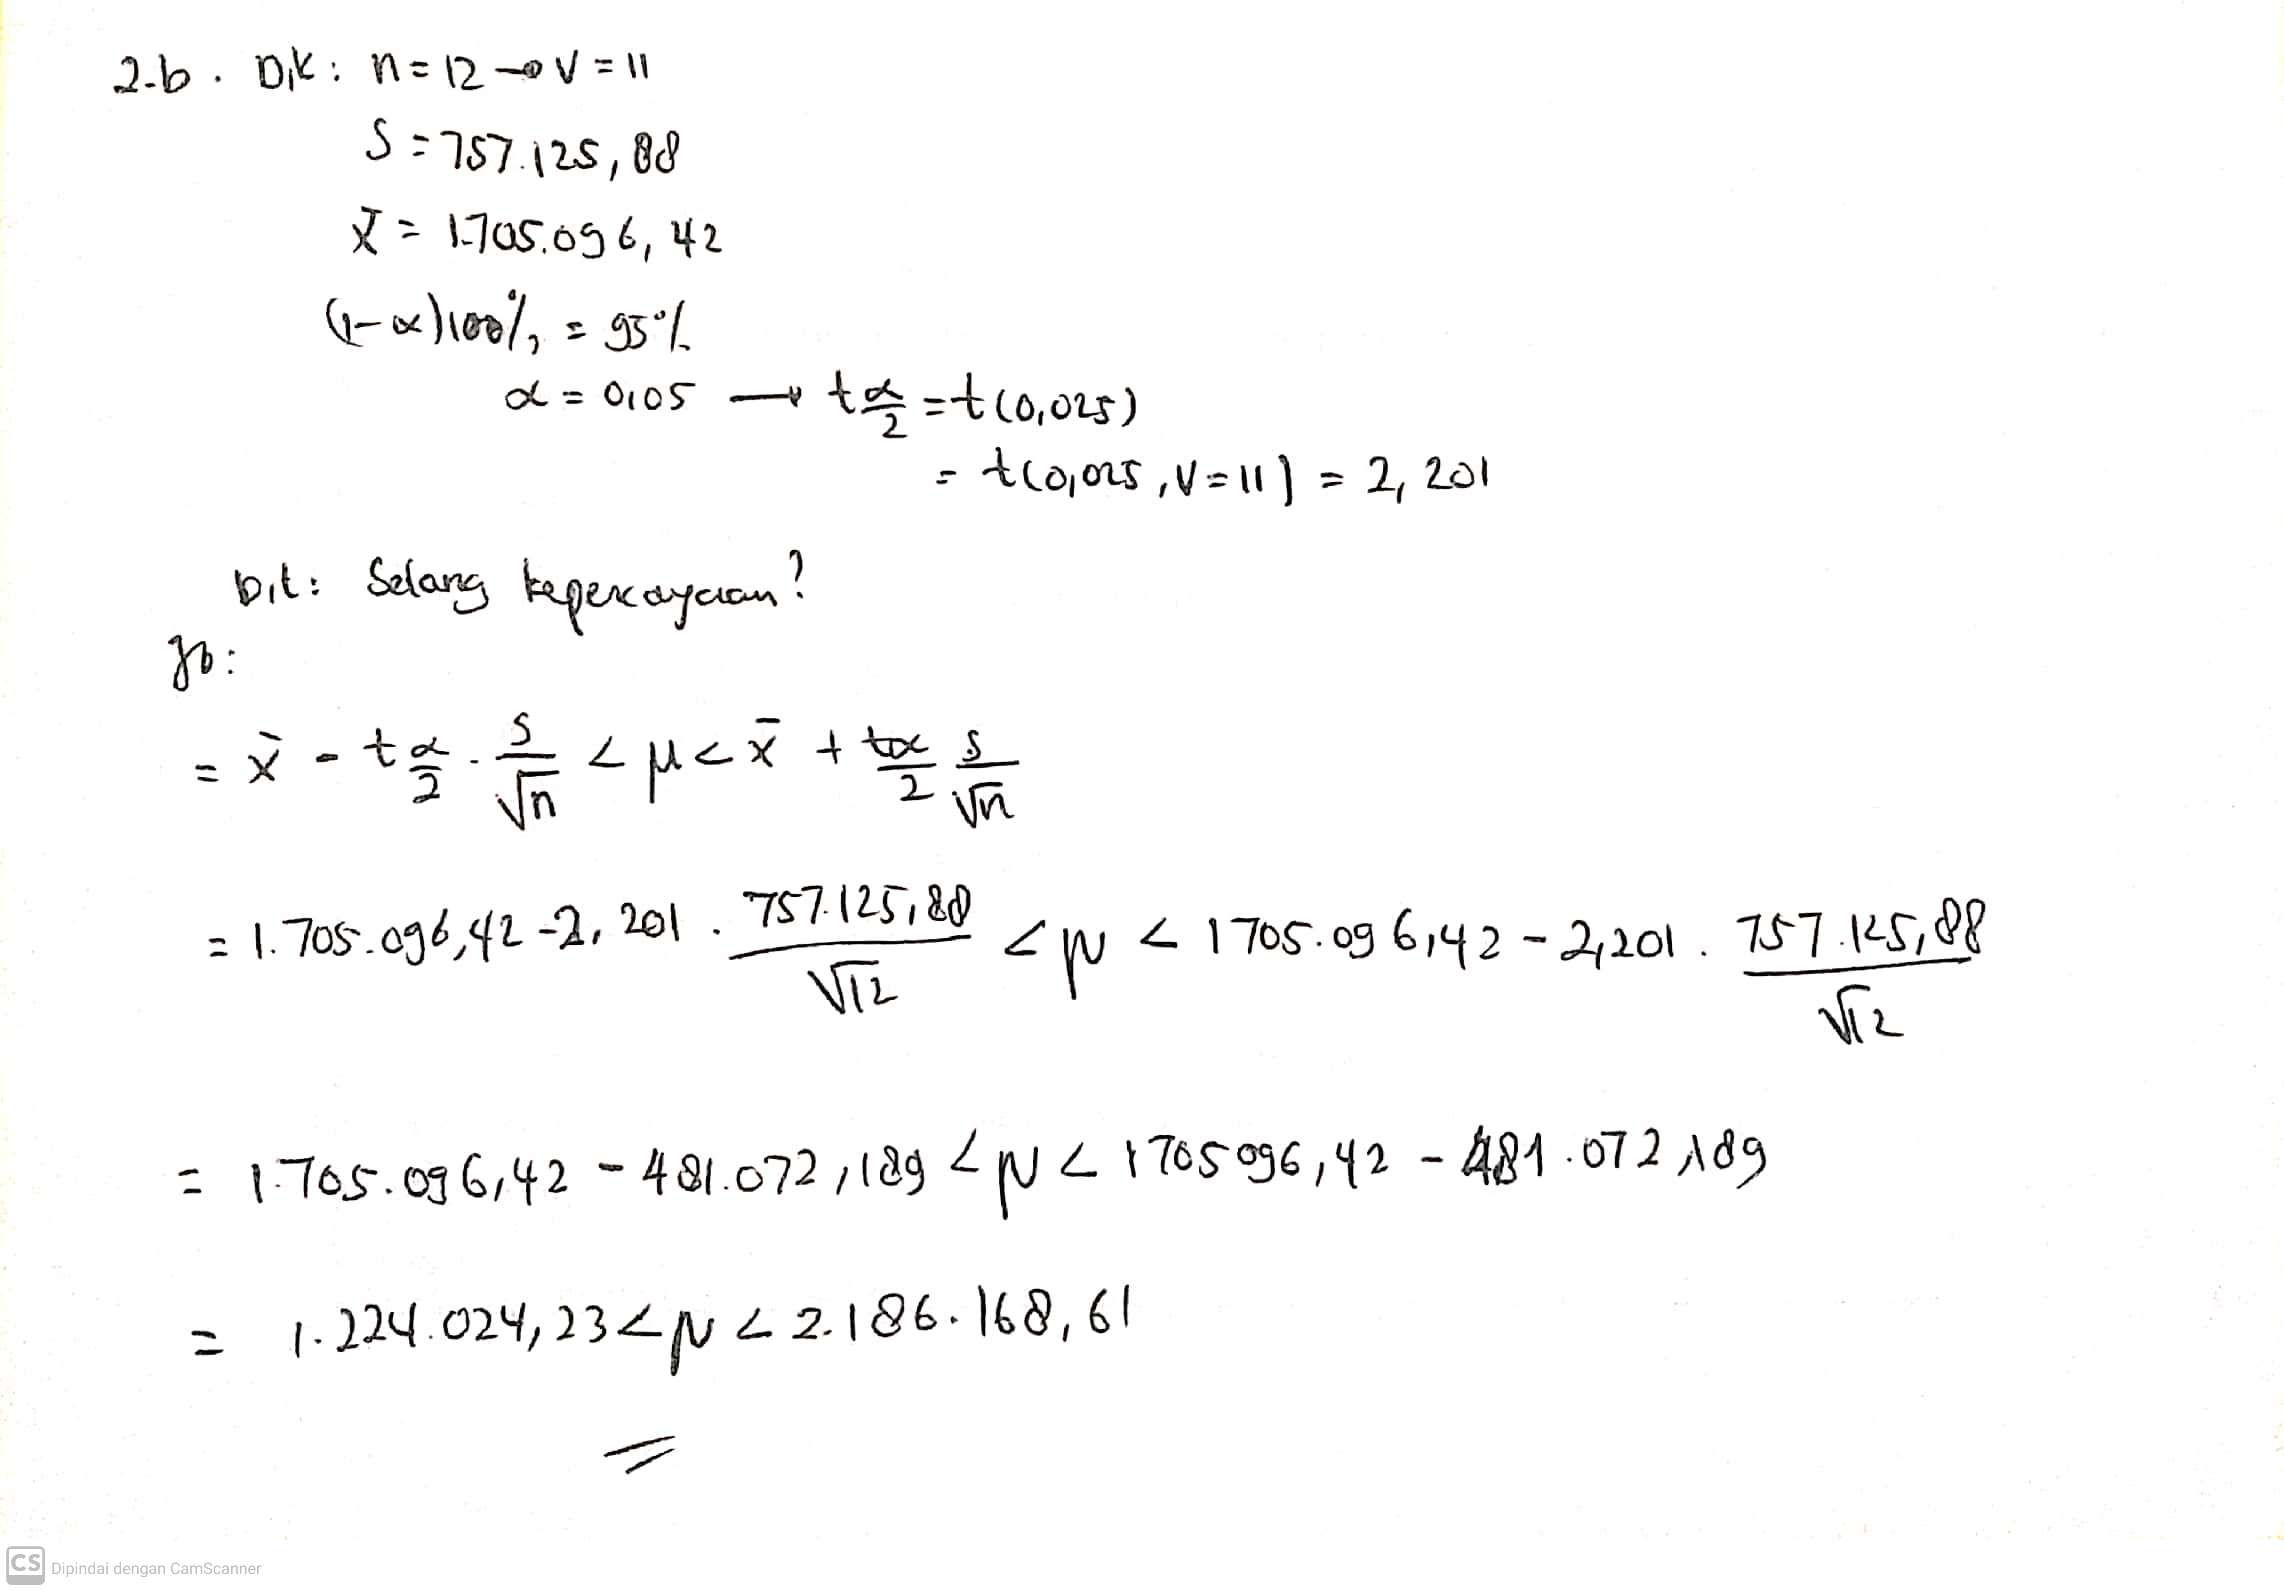 2.b. Dik: n = 12 → V = 11
S = 757.125,88
x̄ = 1.705.096,42
(1-α)100% = 95%
α = 0,05 → t α/2 = t(0,025)
= t(0,025, V = 11) = 2,201
Dit: Selang kepercayaan?
Jb:
= x̄ - t α/2 . s/√n < μ < x̄ + t α/2 s/√n
= 1.705.096,42 - 2,201 . 757.125,88/√12 < μ < 1705.096,42 - 2,201 . 757.125,88/√12
= 1.705.096,42 - 481.072,189 < μ < 1705096,42 - 481.072,189
= 1.224.024,23 < μ < 2.186.168,61
CS Dipindai dengan CamScanner